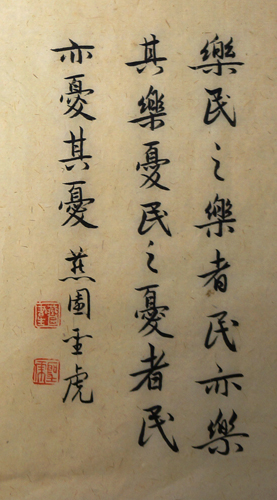 樂民之樂者民亦樂
其樂憂民之憂者民
亦憂其憂